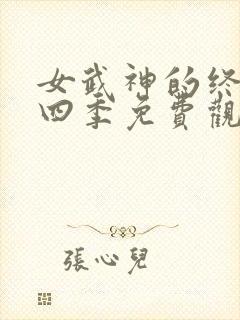 女武神的终
四季免費觀
張心兒